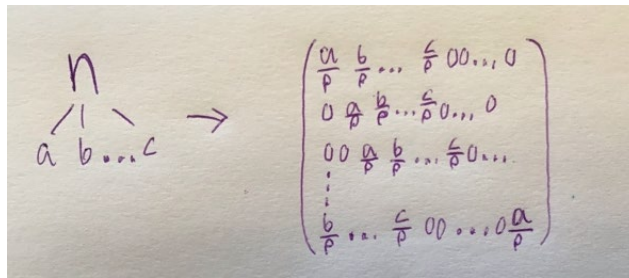 n
a b...c
→
a/p b/p ... c/p 0 0 ... 0
0 a/p b/p ... c/p 0 ... 0
0 0 a/p b/p ... c/p 0 ...
⋮
b/p ... c/p 0 0 ... 0 a/p